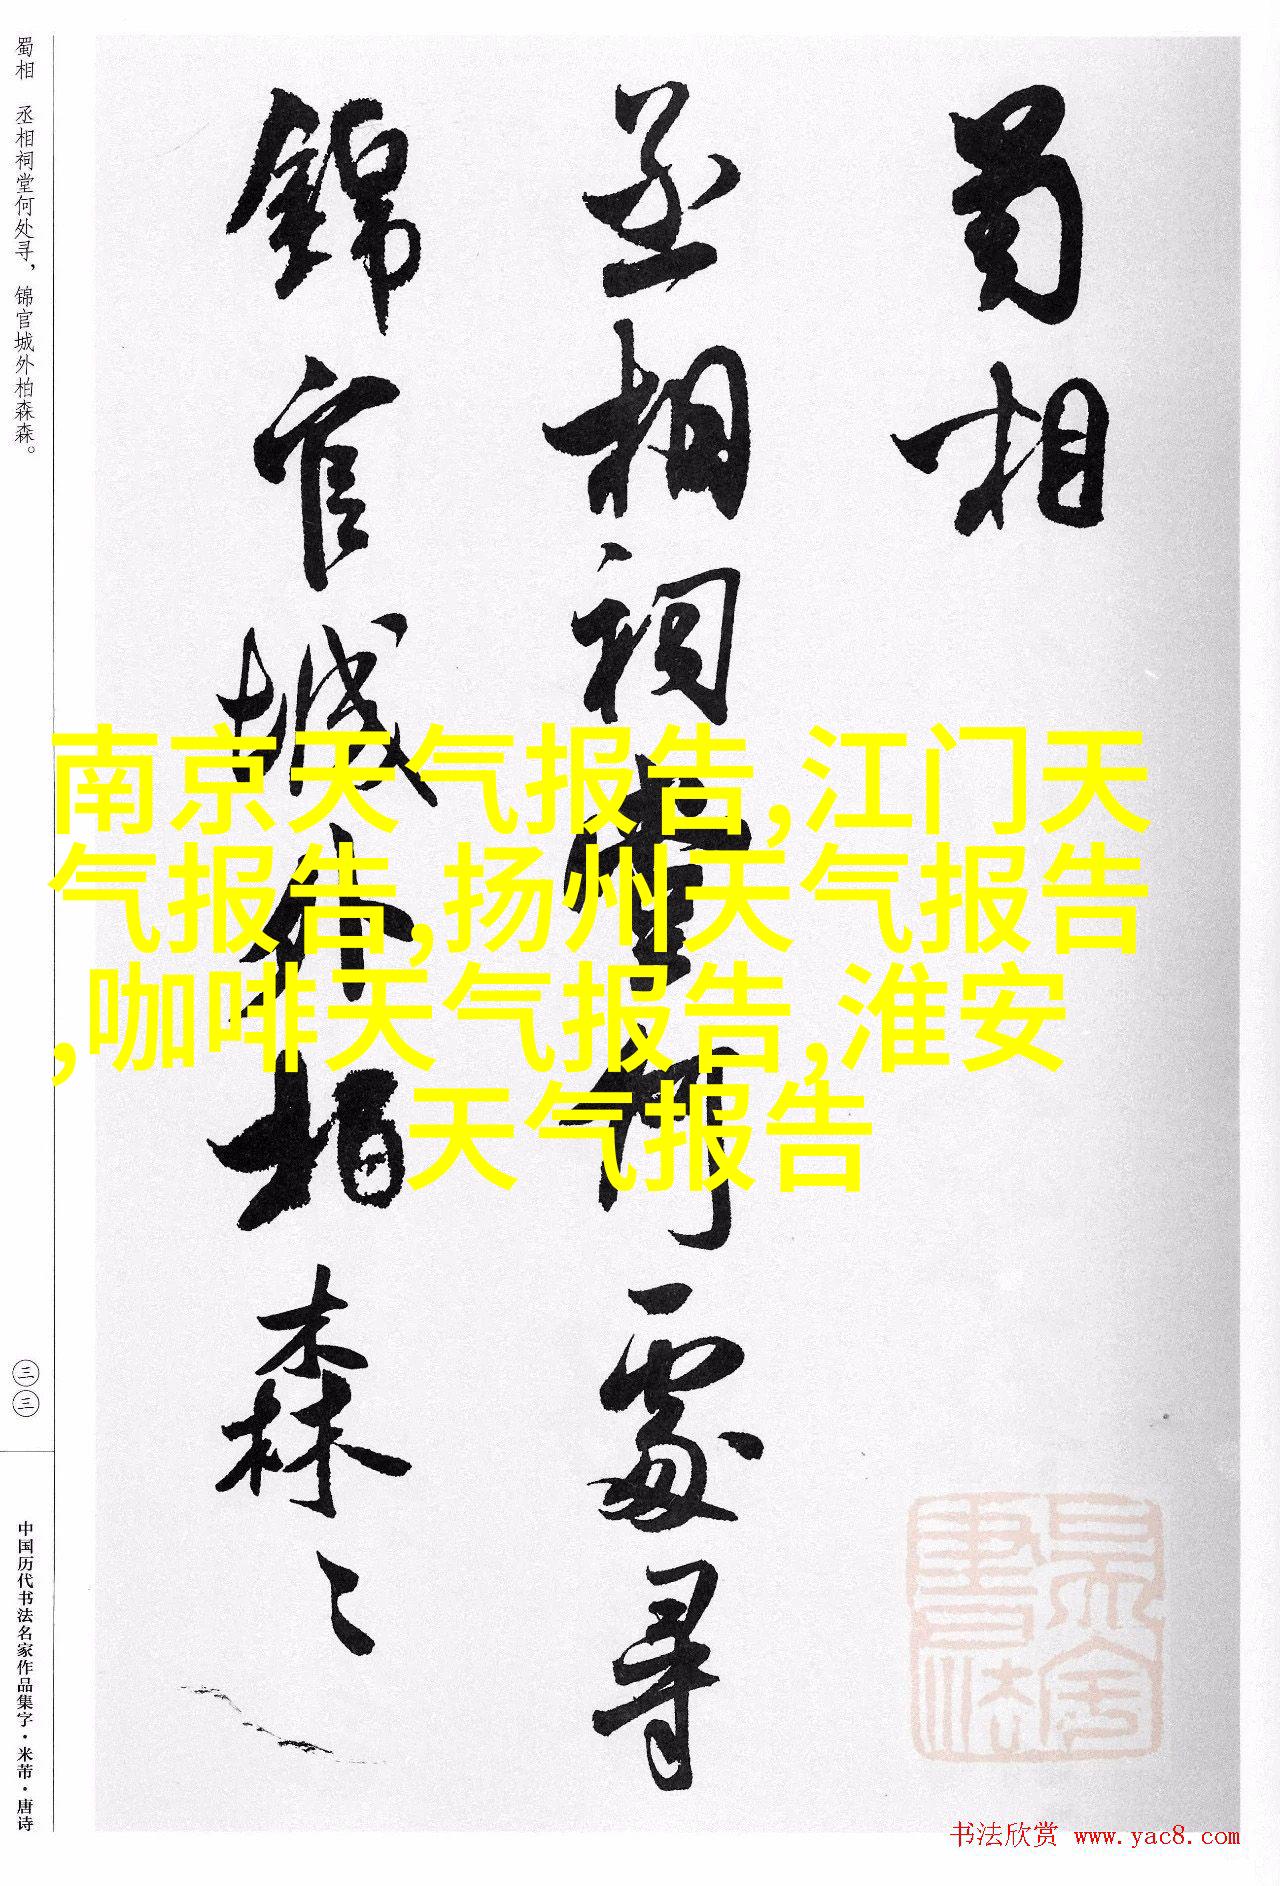 蜀相
丞相祠堂何處尋
錦官城外柏森〻
蜀相 丞相祠堂何处寻，锦官城外柏森森。
㊂㊂
中国历代书法名家作品集字·米芾·唐诗
南京天气报告,江门天
气报告,扬州天气报告
,咖啡天气报告,淮安
天气报告
书法欣赏 www.yac8.com